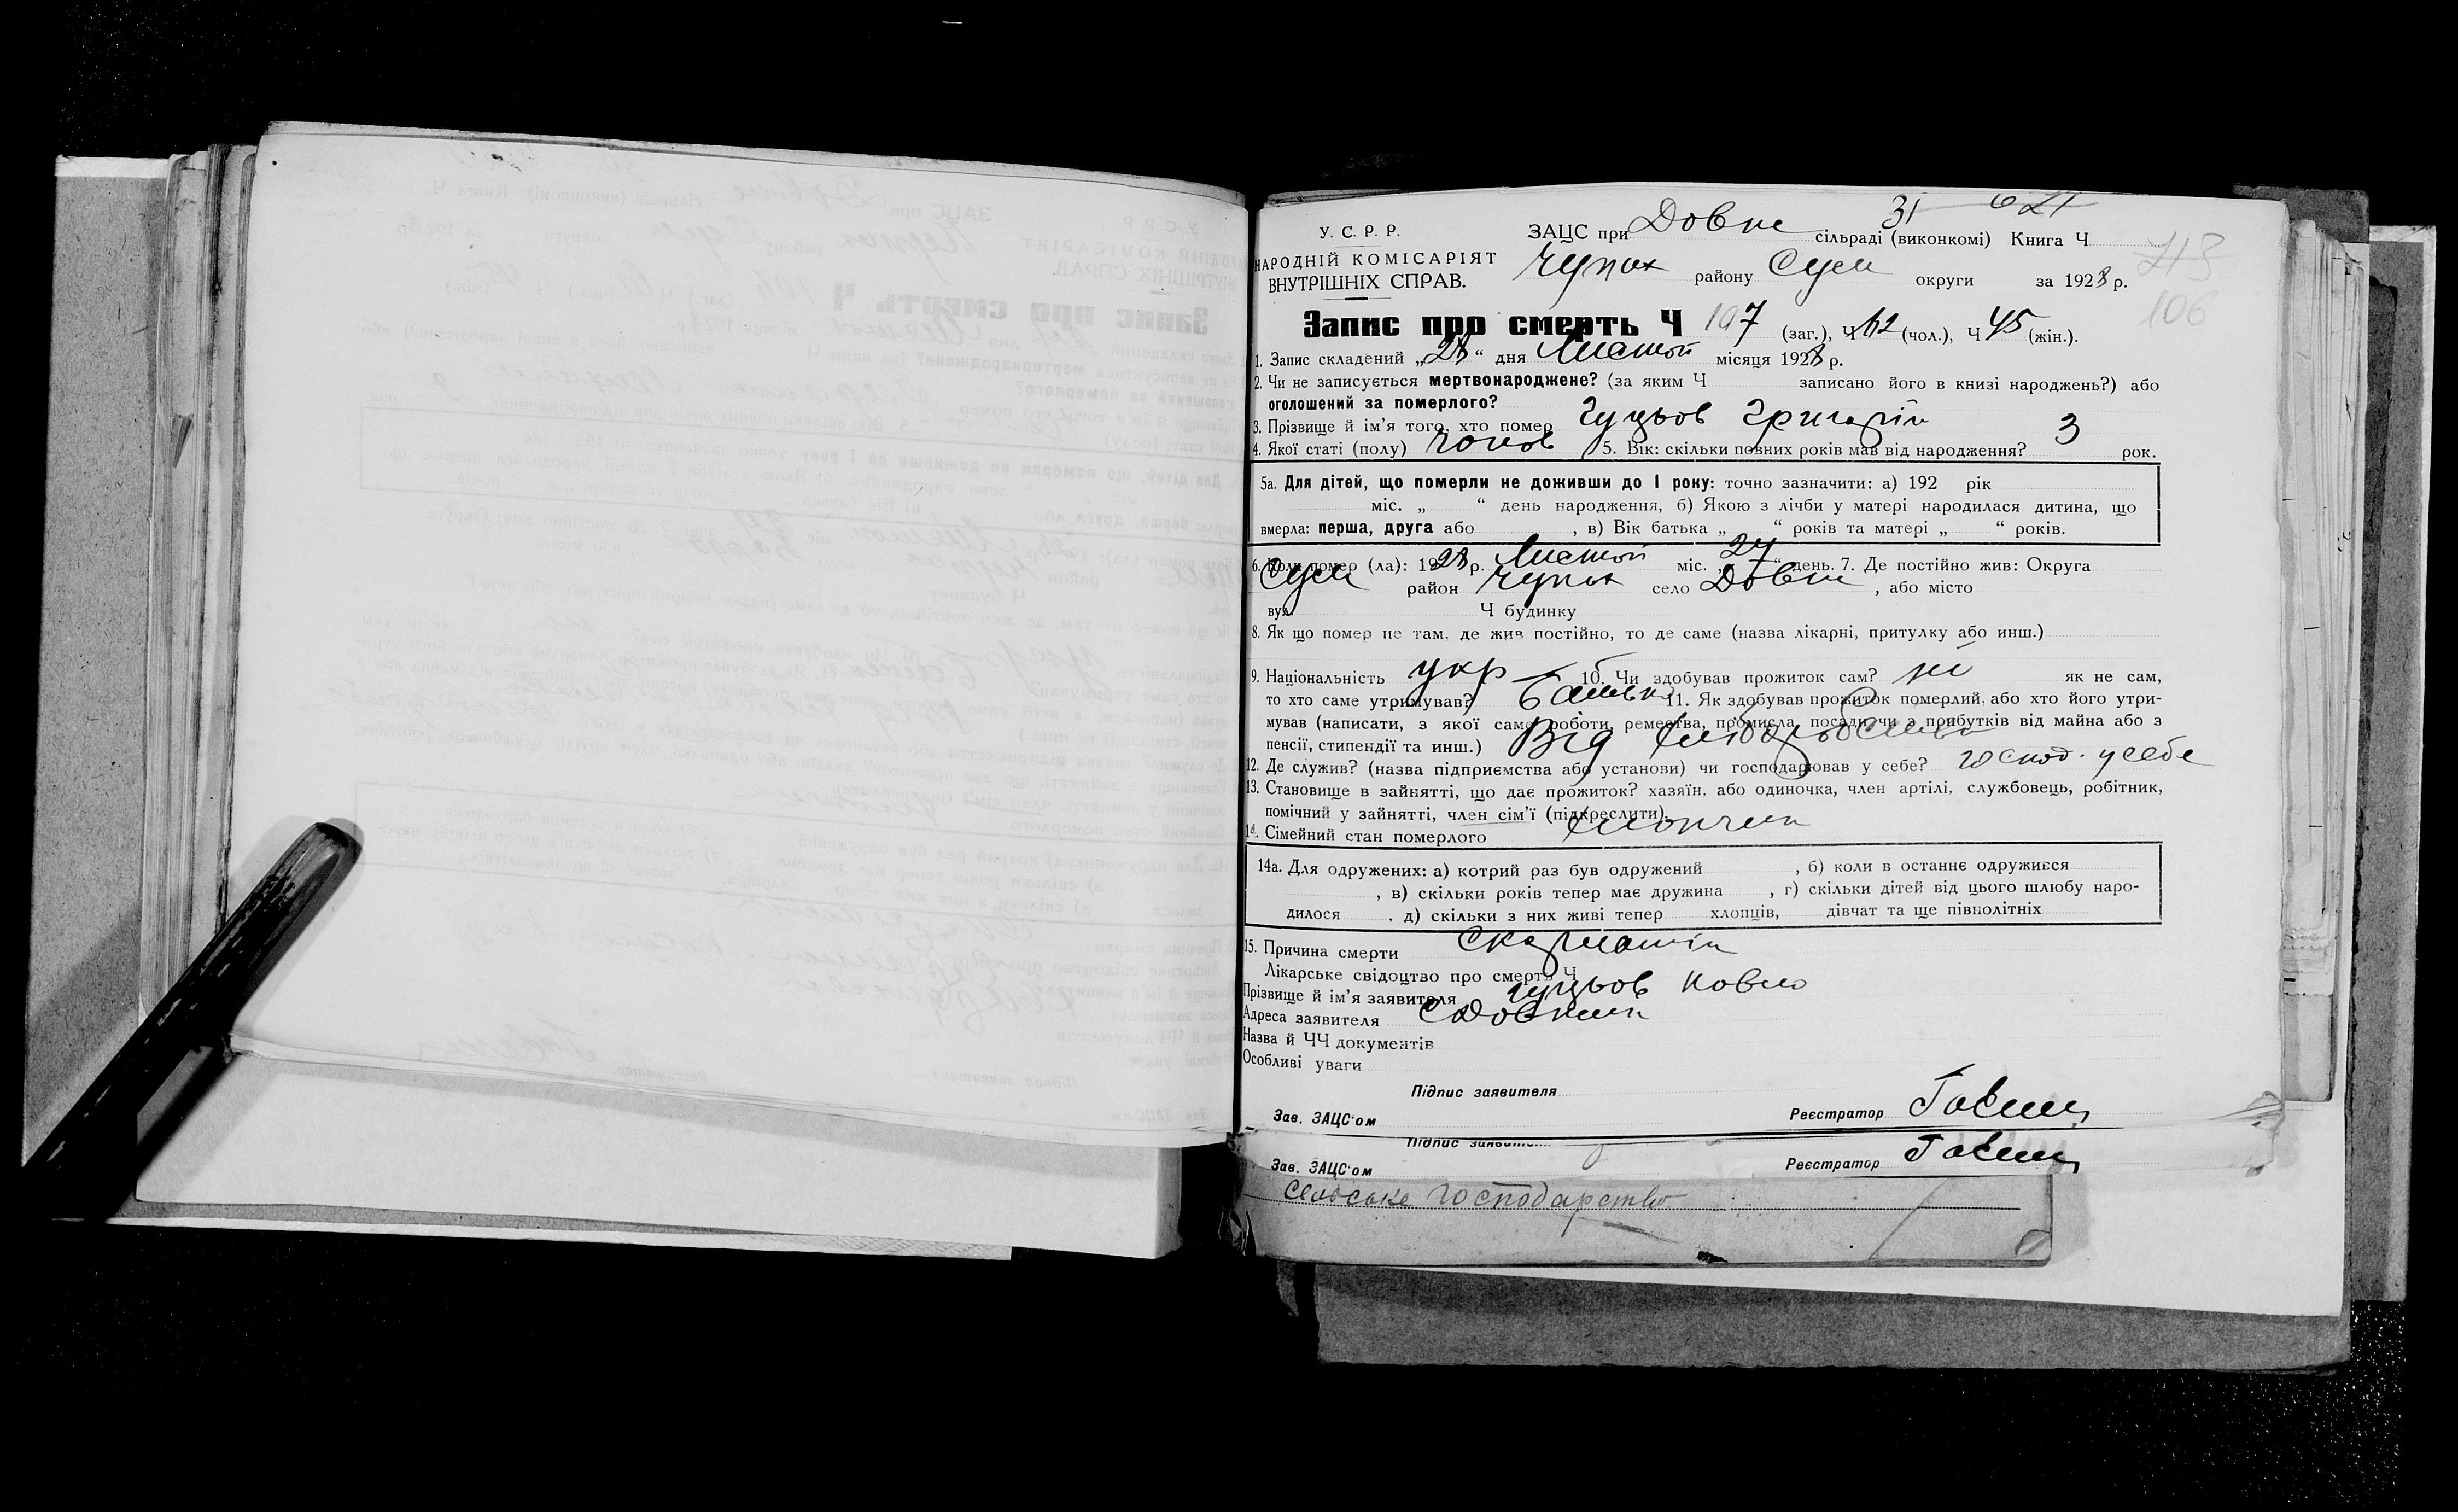 31
У. С. Р. Р.
ЗАЦС при Довж сільраді (виконкомі) Книга Ч
НАРОДНІЙ КОМІСАРІЯТ
ВНУТРІШНІХ СПРАВ.
Чупах району Суми округи за 1928 р.
713
106
Запис про смерть Ч 107 (заг.), Ч 62 (чол.), Ч 45 (жін.).
1. Запис складений „28“ дня Листоп місяця 1928 р.
2. Чи не записується мертвонароджене? (за яким Ч записано його в книзі народжень?) або
оголошений за померлого?
3. Прізвище й ім'я того, хто помер Гуцьов Григорій
4. Якої статі (полу) чолов 5. Вік: скільки повних років мав від народження? 3 рок.
5а. Для дітей, що померли не доживши до 1 року: точно зазначити: а) 192 рік
міс. „ “ день народження, б) Якою з лічби у матері народилася дитина, що
вмерла: перша, друга або , в) Вік батька „ “ років та матері „ “ років.
6. Коли помер (ла): 1928 р. Листоп міс. „27“ день. 7. Де постійно жив: Округа
Суми район Чупах село Довж , або місто
вул. Ч будинку
8. Як що помер не там, де жив постійно, то де саме (назва лікарні, притулку або инш.)
9. Національність укр 10. Чи здобував прожиток сам? ні як не сам,
то хто саме утримував? Батько 11. Як здобував прожиток померлий, або хто його утри-
мував (написати, з якої саме роботи, ремества, промисла, посади чи з прибутків від майна або з
пенсії, стипендії та инш.) Від хліборобства
12. Де служив? (назва підприємства або установи) чи господарював у себе? господ. у себе
13. Становище в зайнятті, що дає прожиток? хазяїн, або одиночка, член артілі, службовець, робітник,
помічний у зайнятті, член сім'ї (підкреслити).
14. Сімейний стан померлого
14а. Для одружених: а) котрий раз був одружений , б) коли в останнє одружився
, в) скільки років тепер має дружина , г) скільки дітей від цього шлюбу наро-
дилося , д) скільки з них живі тепер хлопців, дівчат та ще півнолітніх
15. Причина смерти Скарлатін
Лікарське свідоцтво про смерть Ч
Прізвище й ім'я заявителя Гуцьов Павло
Адреса заявителя
Назва й ЧЧ документів
Особливі уваги
Підпис заявителя
Зав. ЗАЦС'ом Реєстратор
Підпис заявителя
Зав. ЗАЦС'ом Реєстратор
Сельське господарство